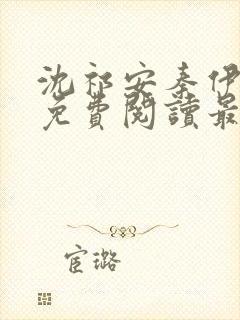 沈祁安秦伊
免費閱讀最
宦璐